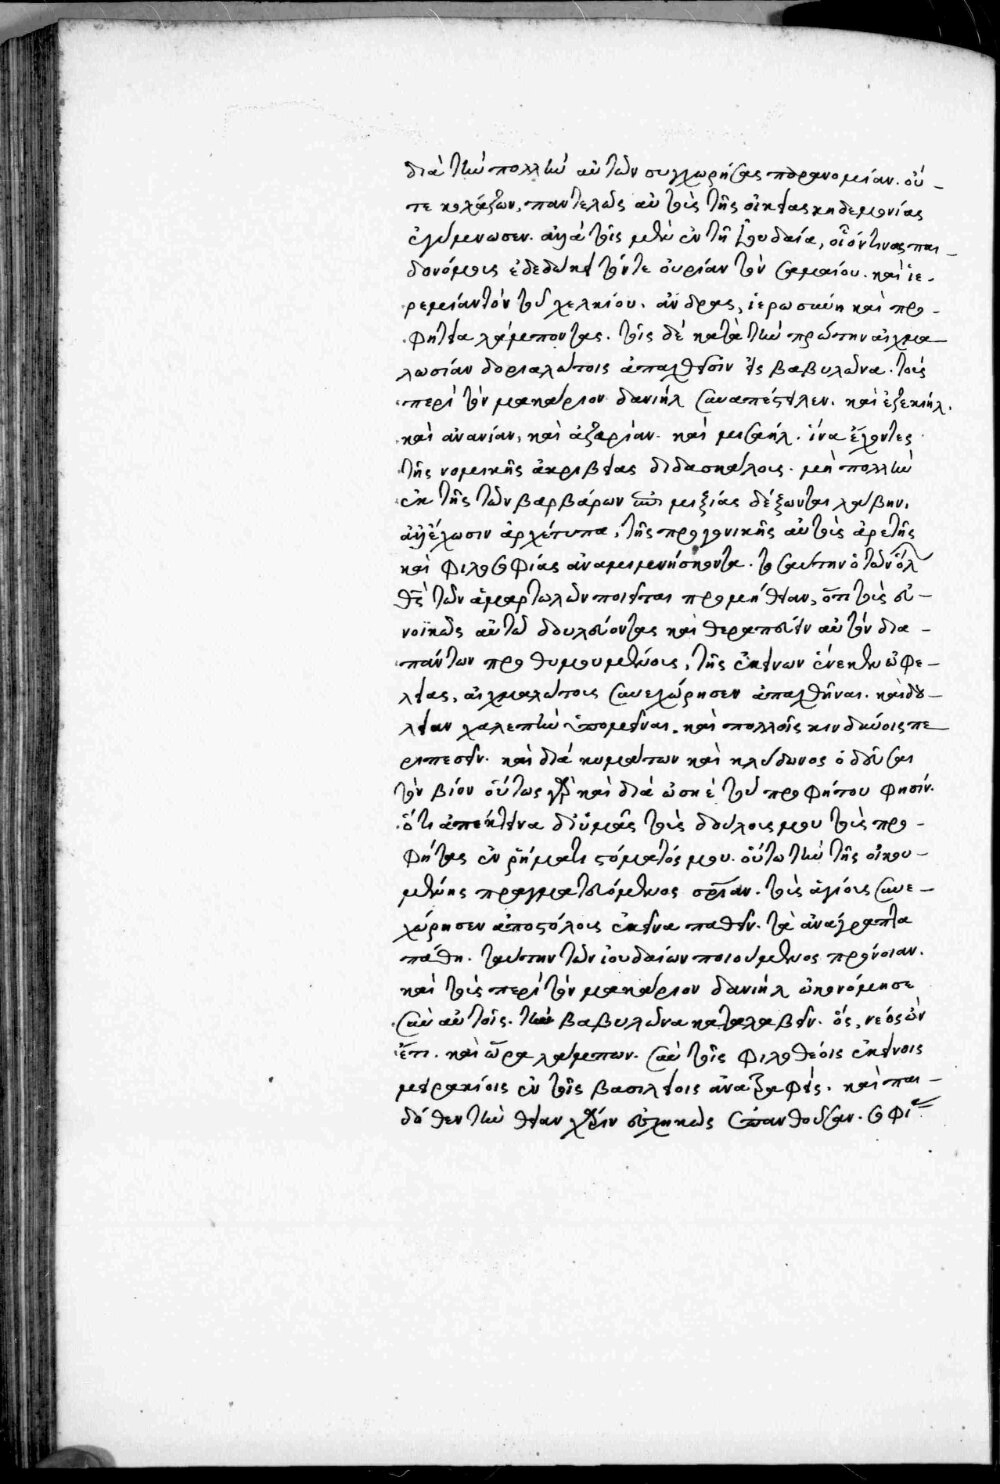 διὰ τὴν πολλὴν αὐτῶν συγχωρήσας παρανομίαν. οὔ-
τε κολάζων, παντελῶς αὐτοὺς τῆς οἰκείας κηδεμονίας
ἐγύμνωσεν. ἀλλὰ τοῖς μὲν ἐν τῇ Ἰουδαία, οἷόν τινας παι-
δονόμους ἐδεδώκει τόν τε οὐρίαν τὸν σαμαίου. καὶ ἱε-
ρεμίαν τὸν τοῦ χελκίου. ἄνδρας, ἱερωσύνη καὶ προ-
φητεία λάμποντας. τοῖς δὲ κατὰ τὴν πρώτην αἰχμα-
λωσίαν δοριαλώτοις ἀπαχθεῖσιν εἰς βαβυλῶνα. τοὺς
περὶ τὸν μακάριον δανιὴλ συναπέστειλεν. καὶ ἐζεκιήλ.
καὶ ἀνανίαν, καὶ ἀζαρίαν. καὶ μισαήλ. ἵνα ἔχοντες
τῆς νομικῆς ἀκριβείας διδασκάλους. μὴ πολλὴν
ἐκ τῆς τῶν βαρβάρων ἐπιμιξίας δέξωνται λώβην.
ἀλλ' ἔχωσιν ἀρχέτυπα, τῆς προγονικῆς αὐτοὺς ἀρετῆς
καὶ φιλοσοφίας ἀναμιμνήσκοντα. τοσαύτην ὁ τῶν ὅλων
θεὸς τῶν ἁμαρτωλῶν ποιεῖται προμήθειαν, ὅτι τοὺς εὐ-
νοϊκῶς αὐτῶ δουλεύοντας καὶ θεραπεύειν αὐτὸν δια-
πάντων προθυμουμένους, τῆς ἐκείνων ἕνεκεν ὠφε-
λείας, αἰχμαλώτους συνεχώρησεν ἀπαχθῆναι. καὶ δου-
λείαν χαλεπὴν ὑπομεῖναι. καὶ πολλοῖς κινδύνοις πε-
ριπεσεῖν. καὶ διὰ κυμάτων καὶ κλύδωνος ὁδεῦσαι
τὸν βίον οὕτως γὰρ καὶ διὰ ὡσηὲ τοῦ προφήτου φησίν.
ὅτι ἀπέκτεινα δι' ὑμᾶς τοὺς δούλους μου τοὺς προ-
φήτας ἐν ῥήματι στόματός μου. οὕτω τὴν τῆς οἰκου-
μένης πραγματευόμενος σωτηρίαν. τοὺς ἁγίους συνε-
χώρησεν ἀποστόλους ἐκεῖνα παθεῖν. τὰ ἀνάγραπτα
πάθη. ταύτην τῶν ἰουδαίων ποιούμενος πρόνοιαν.
καὶ τοὺς περὶ τὸν μακάριον δανιὴλ ὠκονόμησε
σὺν αὐτοῖς. τὴν βαβυλῶνα καταλαβεῖν. ὃς, νέος ὢν
ἔτι. καὶ ὥρα λάμπων. σὺν τοῖς φιλοθέοις ἐκείνοις
μειρακίοις ἐν τοῖς βασιλείοις ἀνατραφείς. καὶ παι-
δόθεν τὴν θείαν χάριν εἰληφὼς ἐπανθοῦσαν. σοφίας